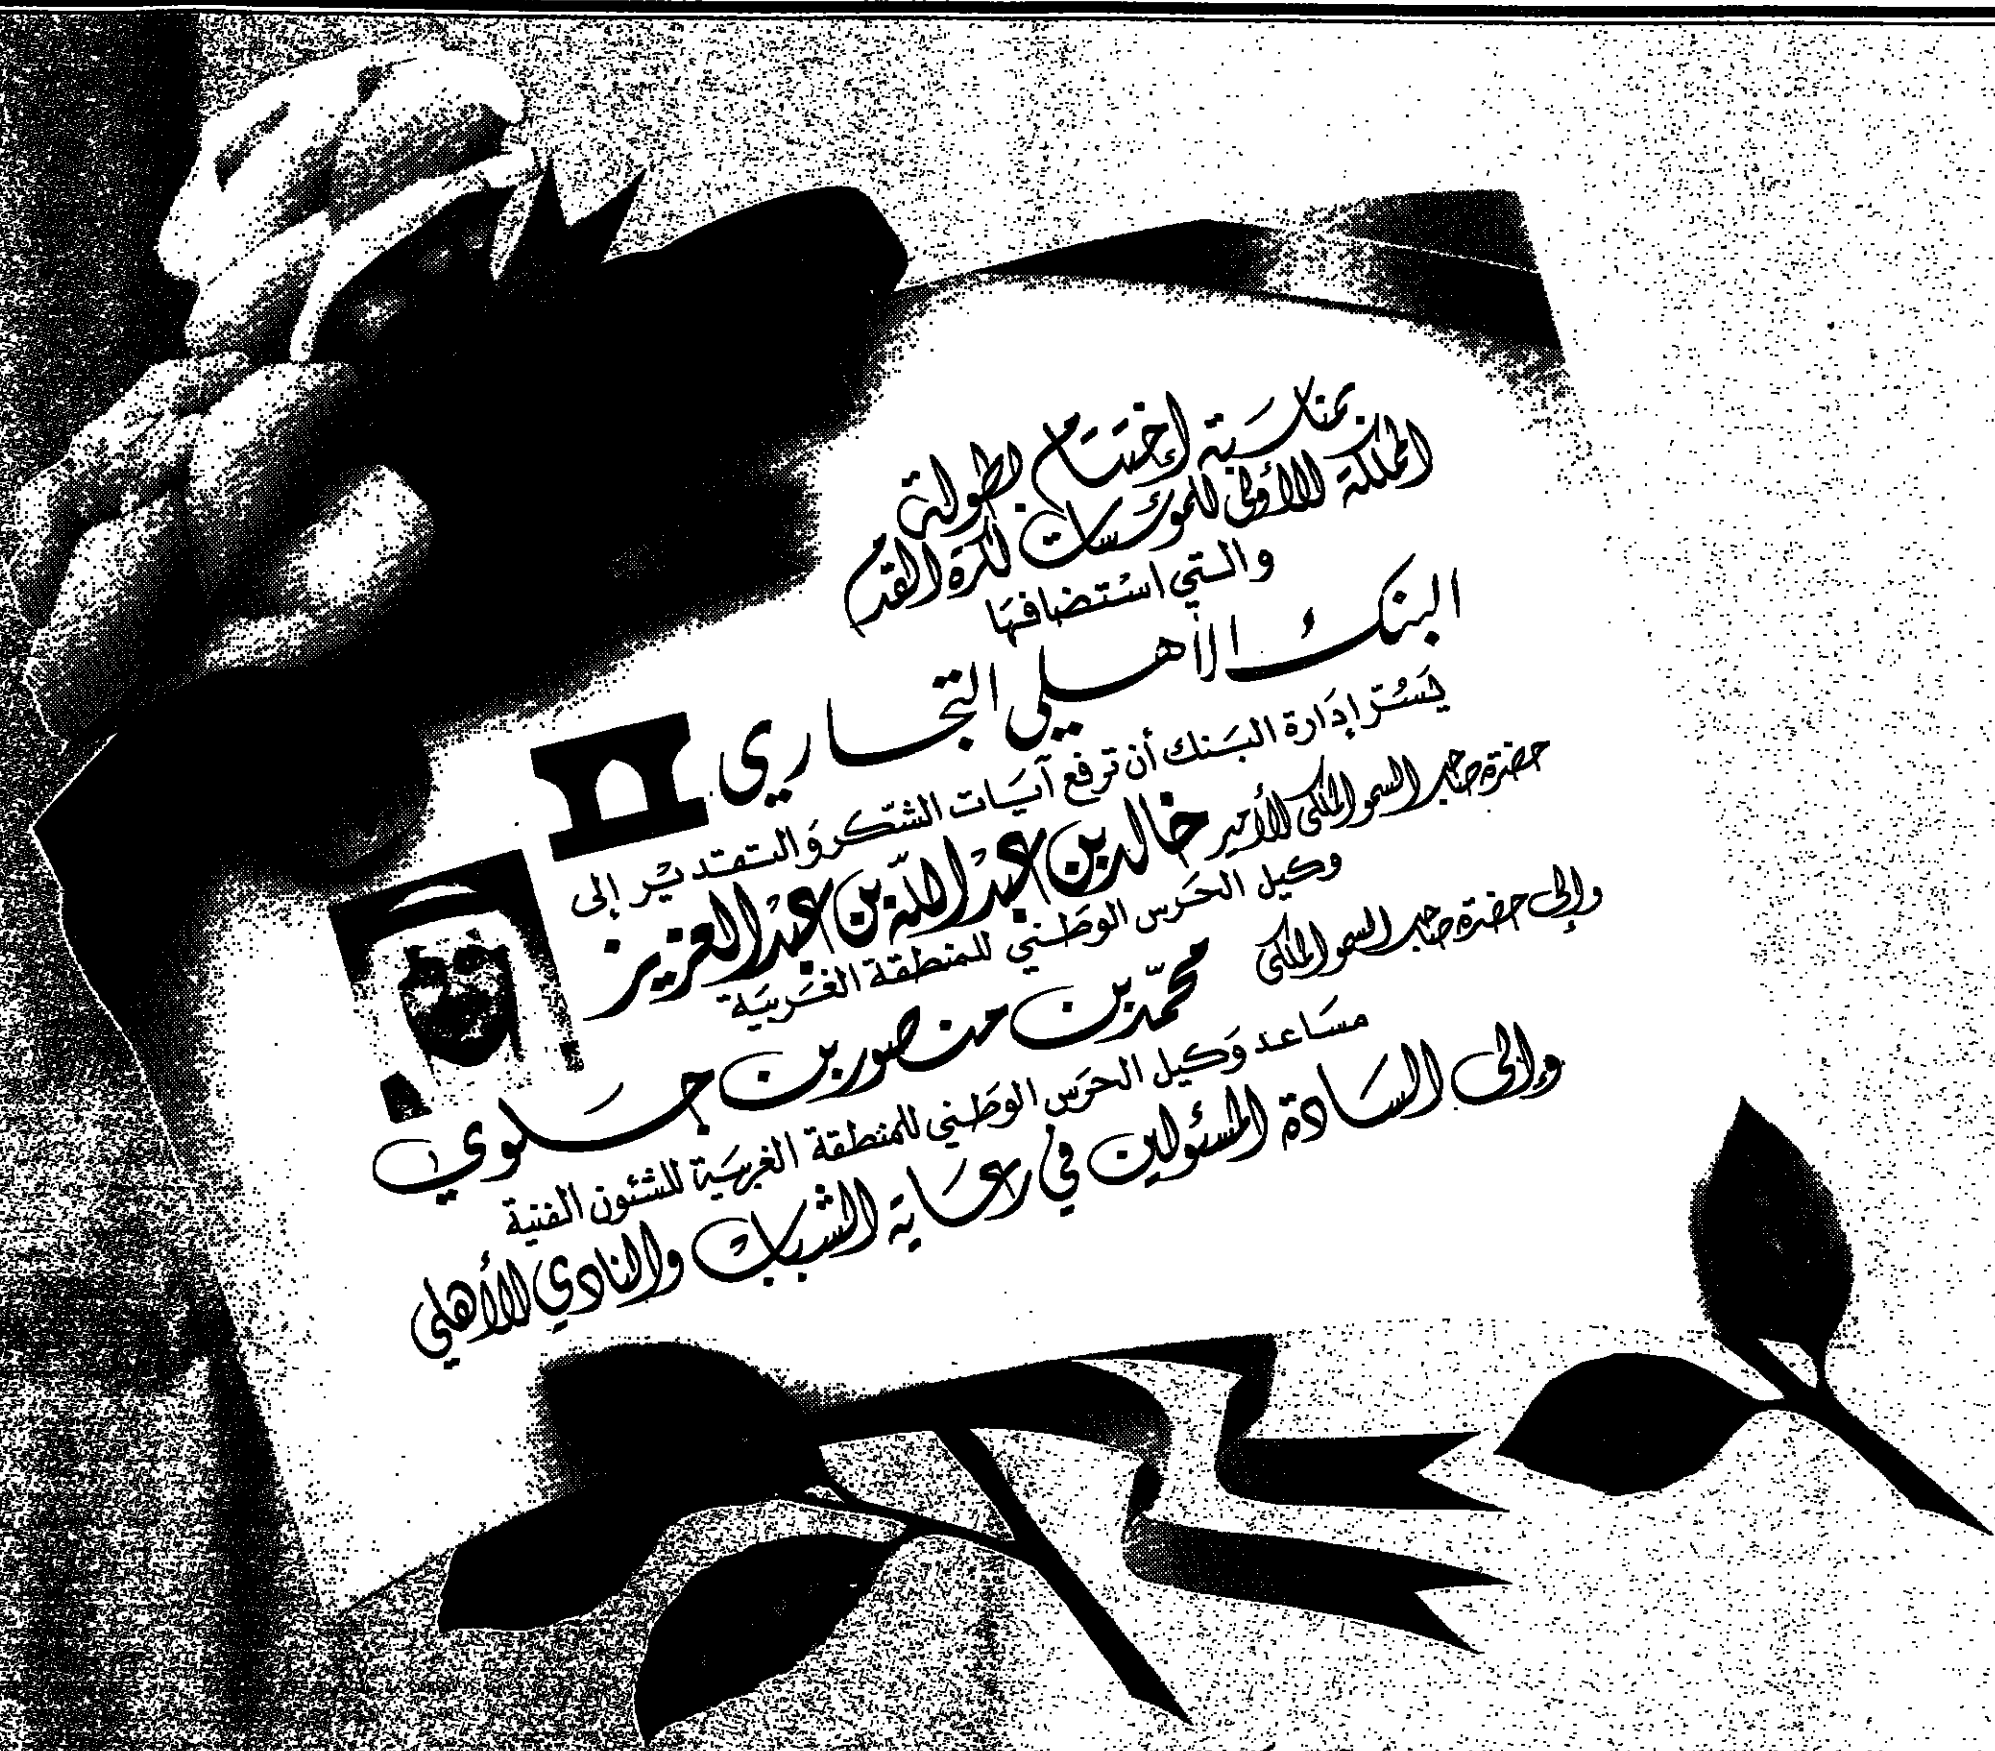 بمناسبة إختتام بطولة
المملكة الأولى للمؤسسات لكرة القدم
والتي استضافها
البنك الأهلي التجاري
يسر إدارة البنك أن ترفع آيات الشكر والتقدير إلى
حضرة صاحب السمو الملكي الأمير خالد بن عبد الله بن عبد العزيز
وكيل الحرس الوطني للمنطقة الغربية
وإلى حضرة صاحب السمو الملكي محمد بن منصور بن جلوي
مساعد وكيل الحرس الوطني للمنطقة الغربية للشئون الفنية
وإلى السادة المسئولين في رعاية الشباب والنادي الأهلي